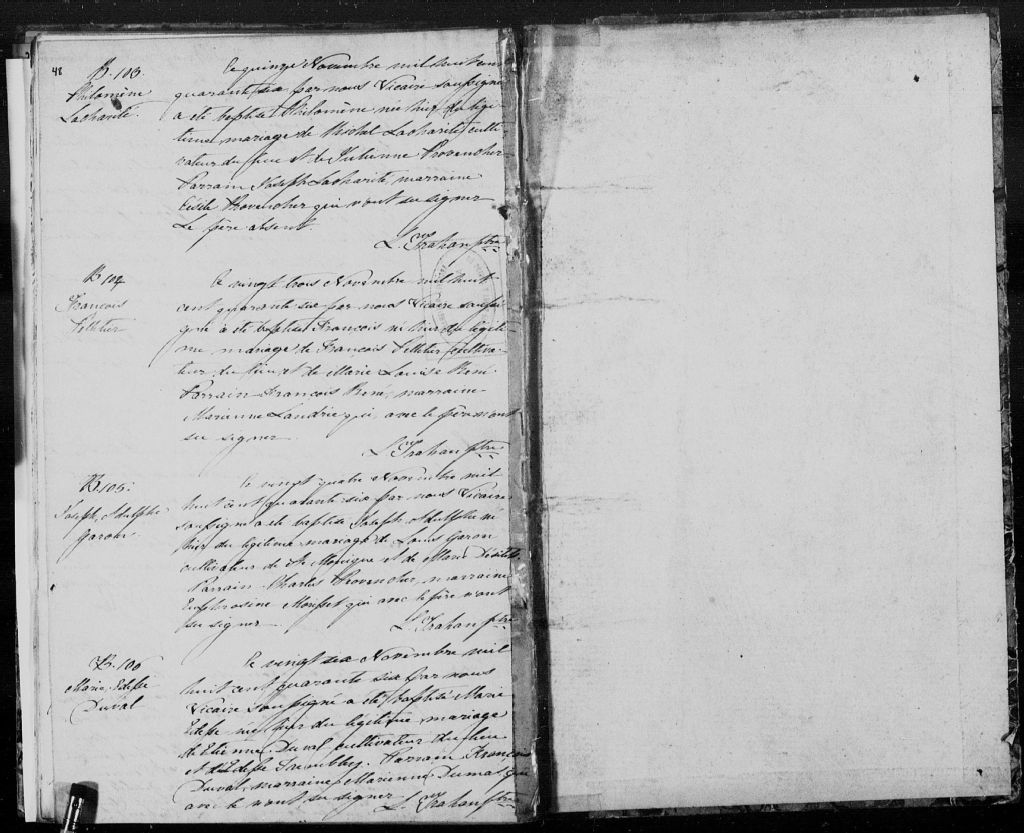 48
B. 103.
Philomène
Lacharité.
Le quinze Novembre mil huit cent
quarante six par nous Vicaire soussigné
a été baptisé Philomène née hier du légi-
time mariage de Michel Lacharité culti-
vateur du lieu et de Julienne Provencher
Parrain Joseph Lacharité, marraine
Cisile Provencher qui n'ont su signer
Le père absent.
L. Trahan ptre
B 104
François
Pelletier
Le vingt trois Novembre mil huit
cent quarante six par nous Vicaire soussi
gné a été baptisé François né hier du légiti-
me mariage de François Pelletier cultiva-
teur du lieu et de Marie Louise René
Parrain François René, marraine
Marianne Landrie qui, avec le père n'ont
su signer
L. Trahan ptre
B. 105.
Joseph Adolphe
Garon
Le vingt quatre Novembre mil
huit cent quarante six par nous Vicaire
soussigné a été baptisé Joseph Adolphe né
hier du légitime mariage de Louis Garon
cultivateur de Ste Monique et de Marie
Parrain Charles Provencher, marraine
Euphrosine qui avec le père n'ont
su signer
L. Trahan ptre
B. 106
Marie Edesse
Duval
Le vingt six Novembre mil
huit cent quarante six par nous
Vicaire soussigné a été baptisé Marie
Edesse née hier du légitime mariage
de Etienne Duval cultivateur du lieu
et d'Edesse Trembley. Parrain François
Duval, marraine Marienne Dumas qui
avec le n'ont su signer L. Trahan ptre